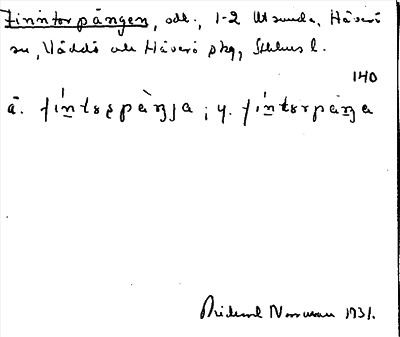 Finntorpängen, odl., 1-2 Utsunda, Häverö
sn, Väddö och Häverö skg, Sthlms l.
140
ä. fìntɷrpàŋja ; y. fìntɷrpàŋa
Rickard Norrman 1931.